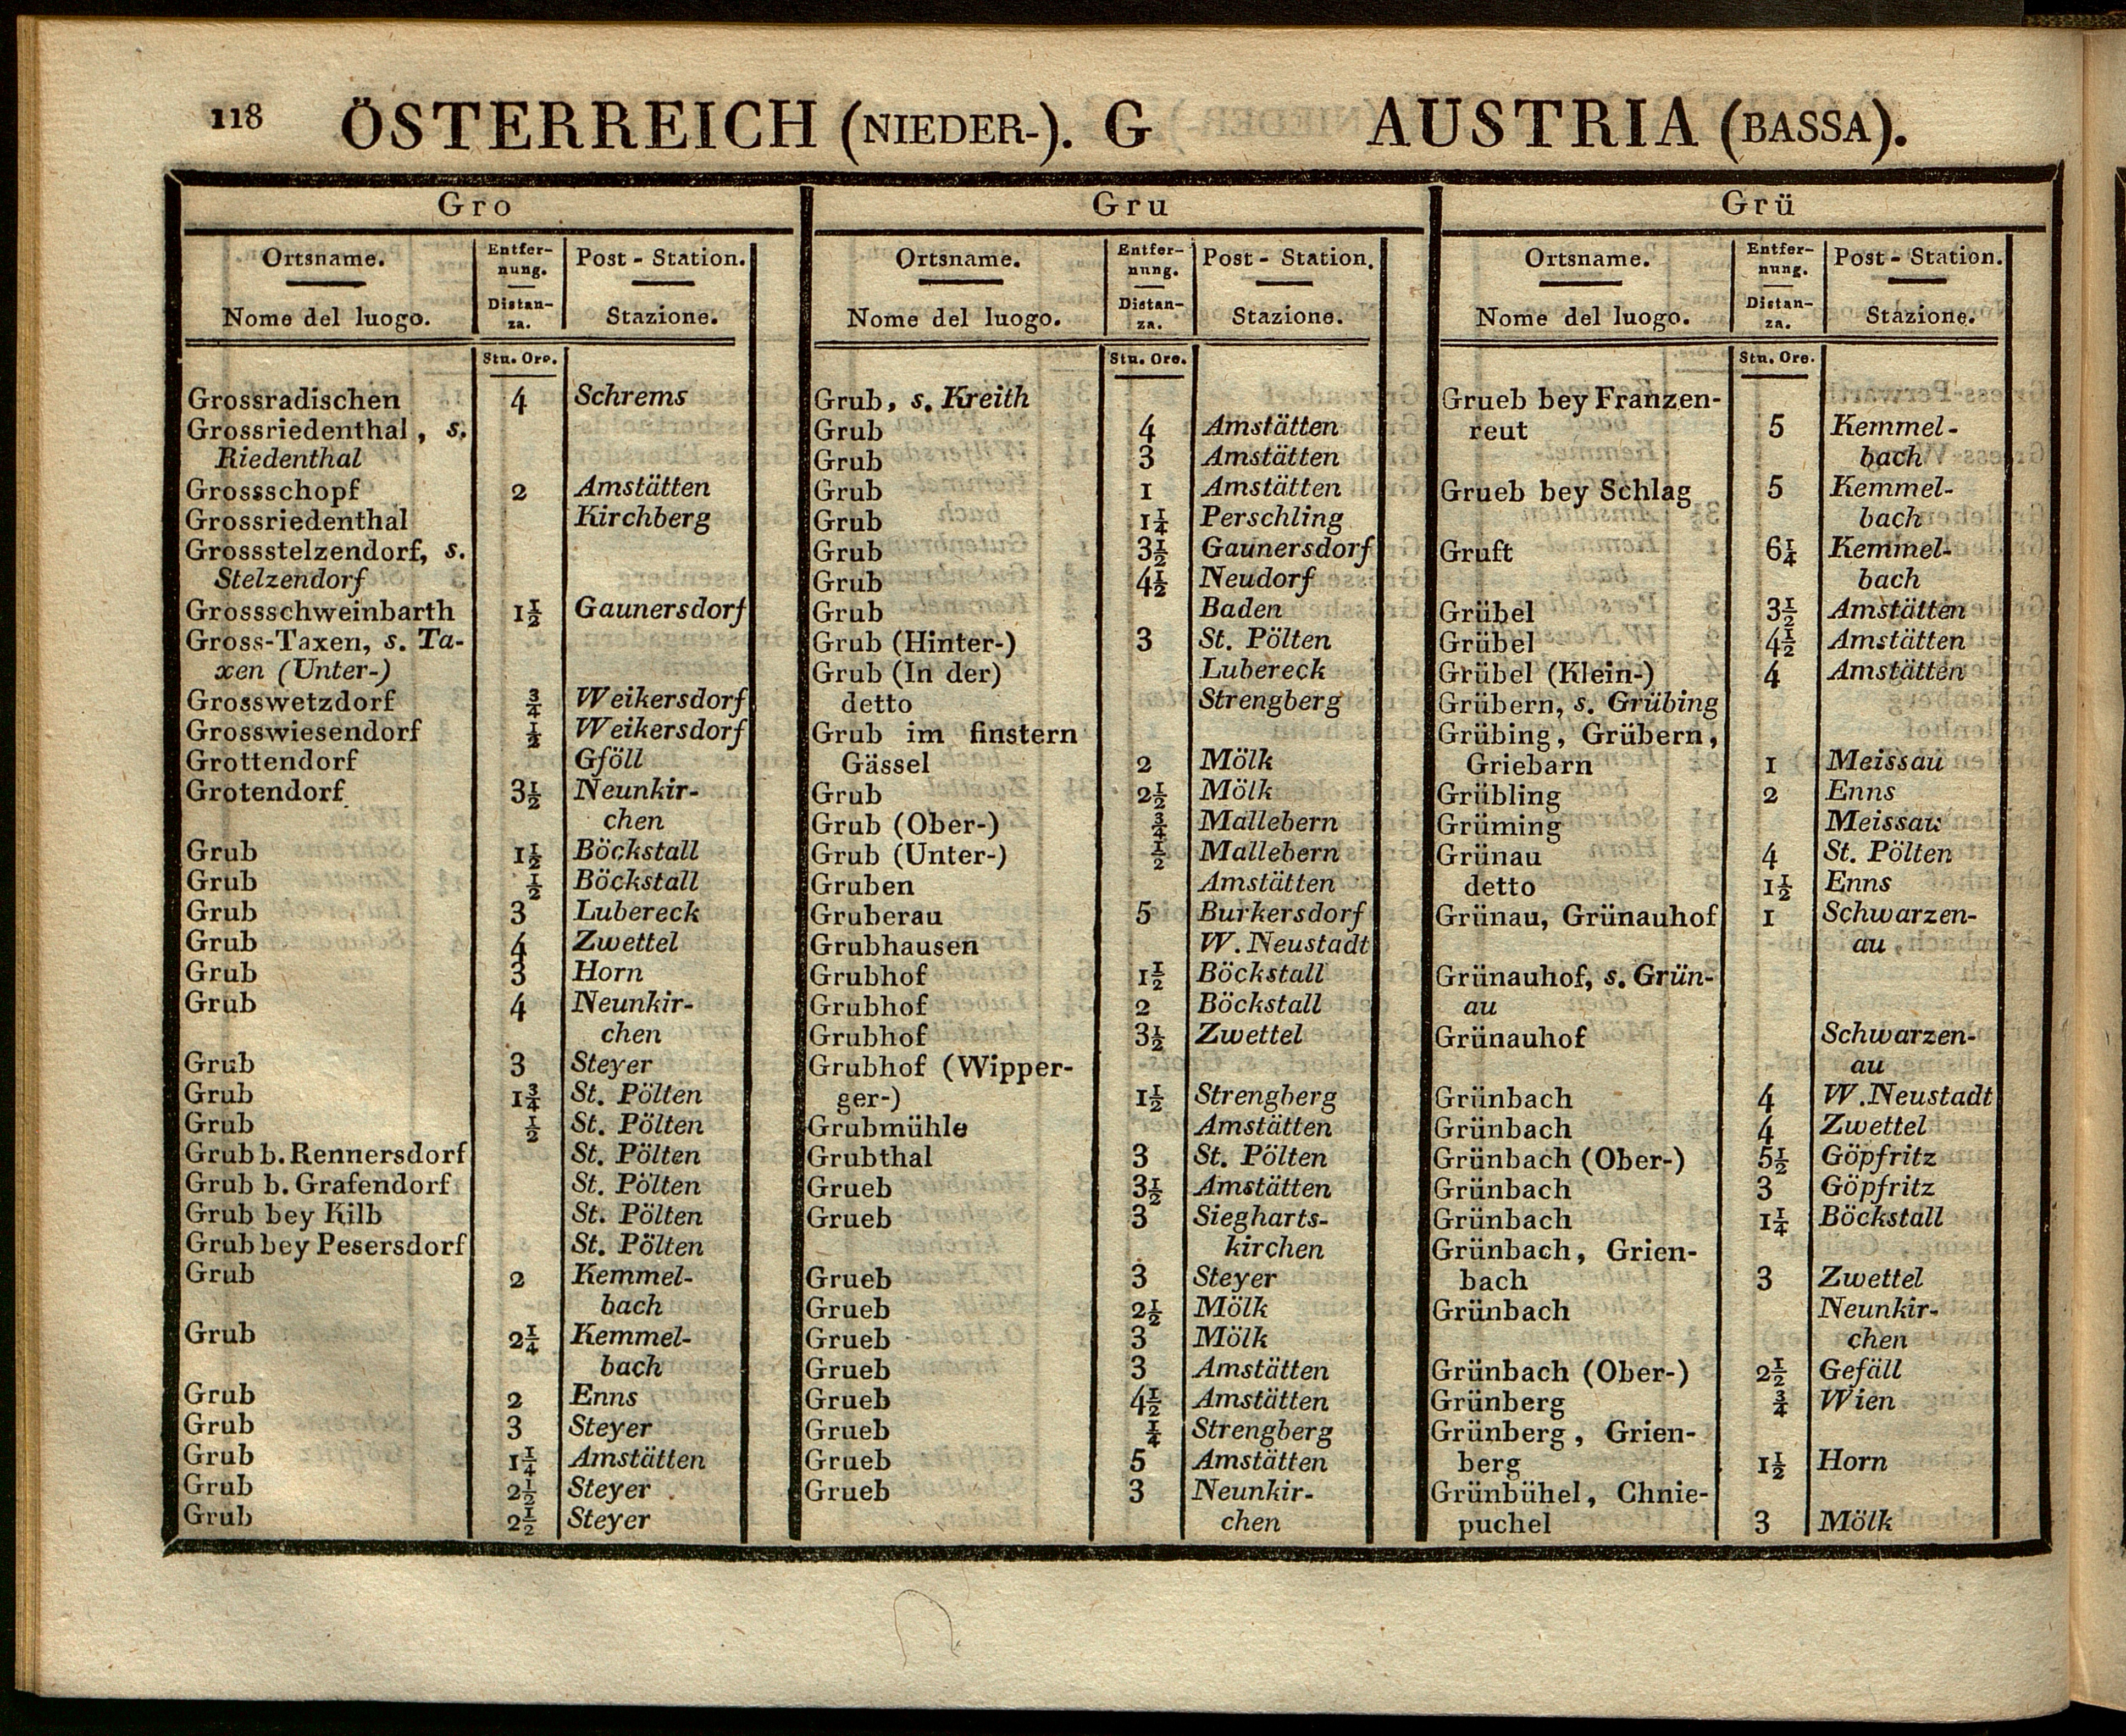 118 ÖSTERREICH (NIEDER-). G AUSTRIA (BASSA).
Gro
Ortsname. Entfer- Post - Station.
nung.
Nome del luogo. Distan- Stazione.
za.
Stu. Ore.
Grossradischen 4 Schrems
Grossriedenthal, s.
Riedenthal
Grossschopf 2 Amstätten
Grossriedenthal Kirchberg
Grossstelzendorf, s.
Stelzendorf
Grossschweinbarth 1½ Gaunersdorf
Gross-Taxen, s. Ta-
xen (Unter-)
Grosswetzdorf ¾ Weikersdorf
Grosswiesendorf ½ Weikersdorf
Grottendorf Gföll
Grotendorf 3½ Neunkir-
chen
Grub 1½ Böckstall
Grub ½ Böckstall
Grub 3 Lubereck
Grub 4 Zwettel
Grub 3 Horn
Grub 4 Neunkir-
chen
Grub 3 Steyer
Grub 1¾ St. Pölten
Grub ½ St. Pölten
Grub b. Rennersdorf St. Pölten
Grub b. Grafendorf St. Pölten
Grub bey Kilb St. Pölten
Grub bey Pesersdorf St. Pölten
Grub 2 Kemmel-
bach
Grub 2¼ Kemmel-
bach
Grub 2 Enns
Grub 3 Steyer
Grub 1¼ Amstätten
Grub 2½ Steyer
Grub 2½ Steyer
Gru
Ortsname. Entfer- Post - Station.
nung.
Nome del luogo. Distan- Stazione.
za.
Stu. Ore.
Grub, s. Kreith
Grub 4 Amstätten
Grub 3 Amstätten
Grub 1 Amstätten
Grub 1¼ Perschling
Grub 3½ Gaunersdorf
Grub 4½ Neudorf
Grub Baden
Grub (Hinter-) 3 St. Pölten
Grub (In der) Lubereck
detto Strengberg
Grub im finstern
Gässel 2 Mölk
Grub 2½ Mölk
Grub (Ober-) ¾ Mallebern
Grub (Unter-) ½ Mallebern
Gruben Amstätten
Gruberau 5 Burkersdorf
Grubhausen W. Neustadt
Grubhof 1½ Böckstall
Grubhof 2 Böckstall
Grubhof 3½ Zwettel
Grubhof (Wipper-
ger-) 1½ Strengberg
Grubmühle Amstätten
Grubthal 3 St. Pölten
Grueb 3½ Amstätten
Grueb 3 Siegharts-
kirchen
Grueb 3 Steyer
Grueb 2½ Mölk
Grueb 3 Mölk
Grueb 3 Amstätten
Grueb 4½ Amstätten
Grueb ¼ Strengberg
Grueb 5 Amstätten
Grueb 3 Neunkir-
chen
Grü
Ortsname. Entfer- Post - Station.
nung.
Nome del luogo. Distan- Stazione.
za.
Stu. Ore.
Grueb bey Franzen-
reut 5 Kemmel-
bach
Grueb bey Schlag 5 Kemmel-
bach
Gruft 6¼ Kemmel-
bach
Grübel 3½ Amstätten
Grübel 4½ Amstätten
Grübel (Klein-) 4 Amstätten
Grübern, s. Grübing
Grübing, Grübern,
Griebarn 1 Meissau
Grübling 2 Enns
Grüming Meissau
Grünau 4 St. Pölten
detto 1½ Enns
Grünau, Grünauhof 1 Schwarzen-
au
Grünauhof, s. Grün-
au
Grünauhof Schwarzen-
au
Grünbach 4 W. Neustadt
Grünbach 4 Zwettel
Grünbach (Ober-) 5½ Göpfritz
Grünbach 3 Göpfritz
Grünbach 1¼ Böckstall
Grünbach, Grien-
bach 3 Zwettel
Grünbach Neunkir-
chen
Grünbach (Ober-) 2½ Gefäll
Grünberg ¾ Wien
Grünberg, Grien-
berg 1½ Horn
Grünbühel, Chnie-
puchel 3 Mölk